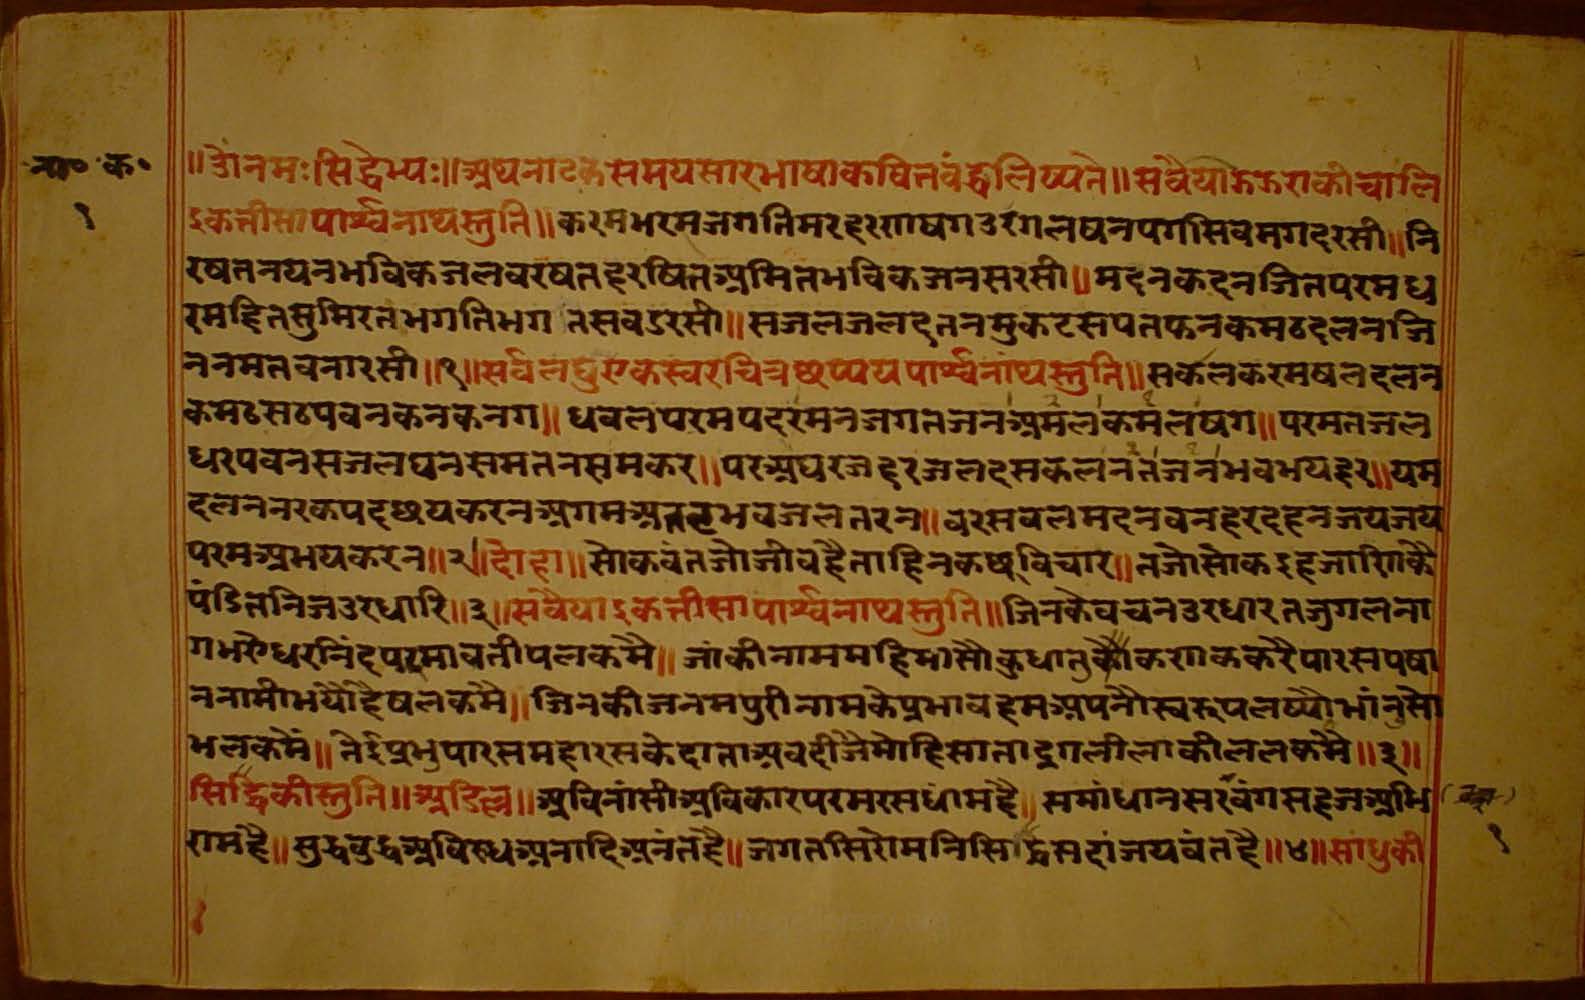 ना॰ क॰
१
॥ॐनमःसिद्धेभ्यः॥अथनाटकसमयसारभाषाकवितबंद्धलिष्यते॥सवैयाऊऊराकीचालि
इकतीसापार्श्वनाथस्तुति॥करमभरमजगतिमरहरगाषगउरगलषनपगसिवमगदरसी॥नि
रषतनयनभविकजलवरषतहरषितअमितभविकजनसरसी॥मदनकदनजितपरमध
रमहितसुमिरतभगतिभग तसवडरसी॥सजलजलदतनमुकटसपतफनकमठदलनजि
ननमतवनारसी॥१॥सर्वलघुएकस्वरचित्रछप्पयपार्श्वनाथस्तुति॥सकलकरमषलदलन
कमठसठपवनकनकनग॥धवलपरमपदरमनजगतजनअमलकमलषग॥परमतजल
धरपवनसजलघनसमतनसमकर॥परअघरजहरजलदसकलनतजनभवभयहर॥यम
दलननरकपदछयकरनअगमअततटभवजलतरन॥वरसवलमदनवनहरदहनजयजय
परमअभयकरन॥२॥दोहा॥सोकवंतजोजीवहैताहिनकछूविचार॥तजोसोकइहजाणिकै
पंडितनिजउरधारि॥३॥सवैयाइकतीसापार्श्वनाथस्तुति॥जिनकेवचनउरधारतजुगलना
गभएधरनिंदपदमावतीपलकमै॥जांकीनाममहिमासौकुधातुकौकणाककरैपारसपषा
ननामीभयौहैषलकमै॥जिनकीजनमपुरीनामकेप्रभावहमअपनौस्वरूपलष्यौभांनुसो
भलकमै॥तेईप्रभुपारसमहारसकेदाताअवदीजैमोहिसाताद्रुगलीलाकीललकमै॥३॥
सिद्धिकीस्तुति॥अडिल्ल॥अविनांसीअविकारपरमरसधांमहै॥समांधानसरवंगसहजअभि
रामहै॥सुद्धवुद्धअविरुधअनादिअनंतहै॥जगतसिरोमनिसिद्धसदांजयवंतहै॥४॥साधुकी
१
१